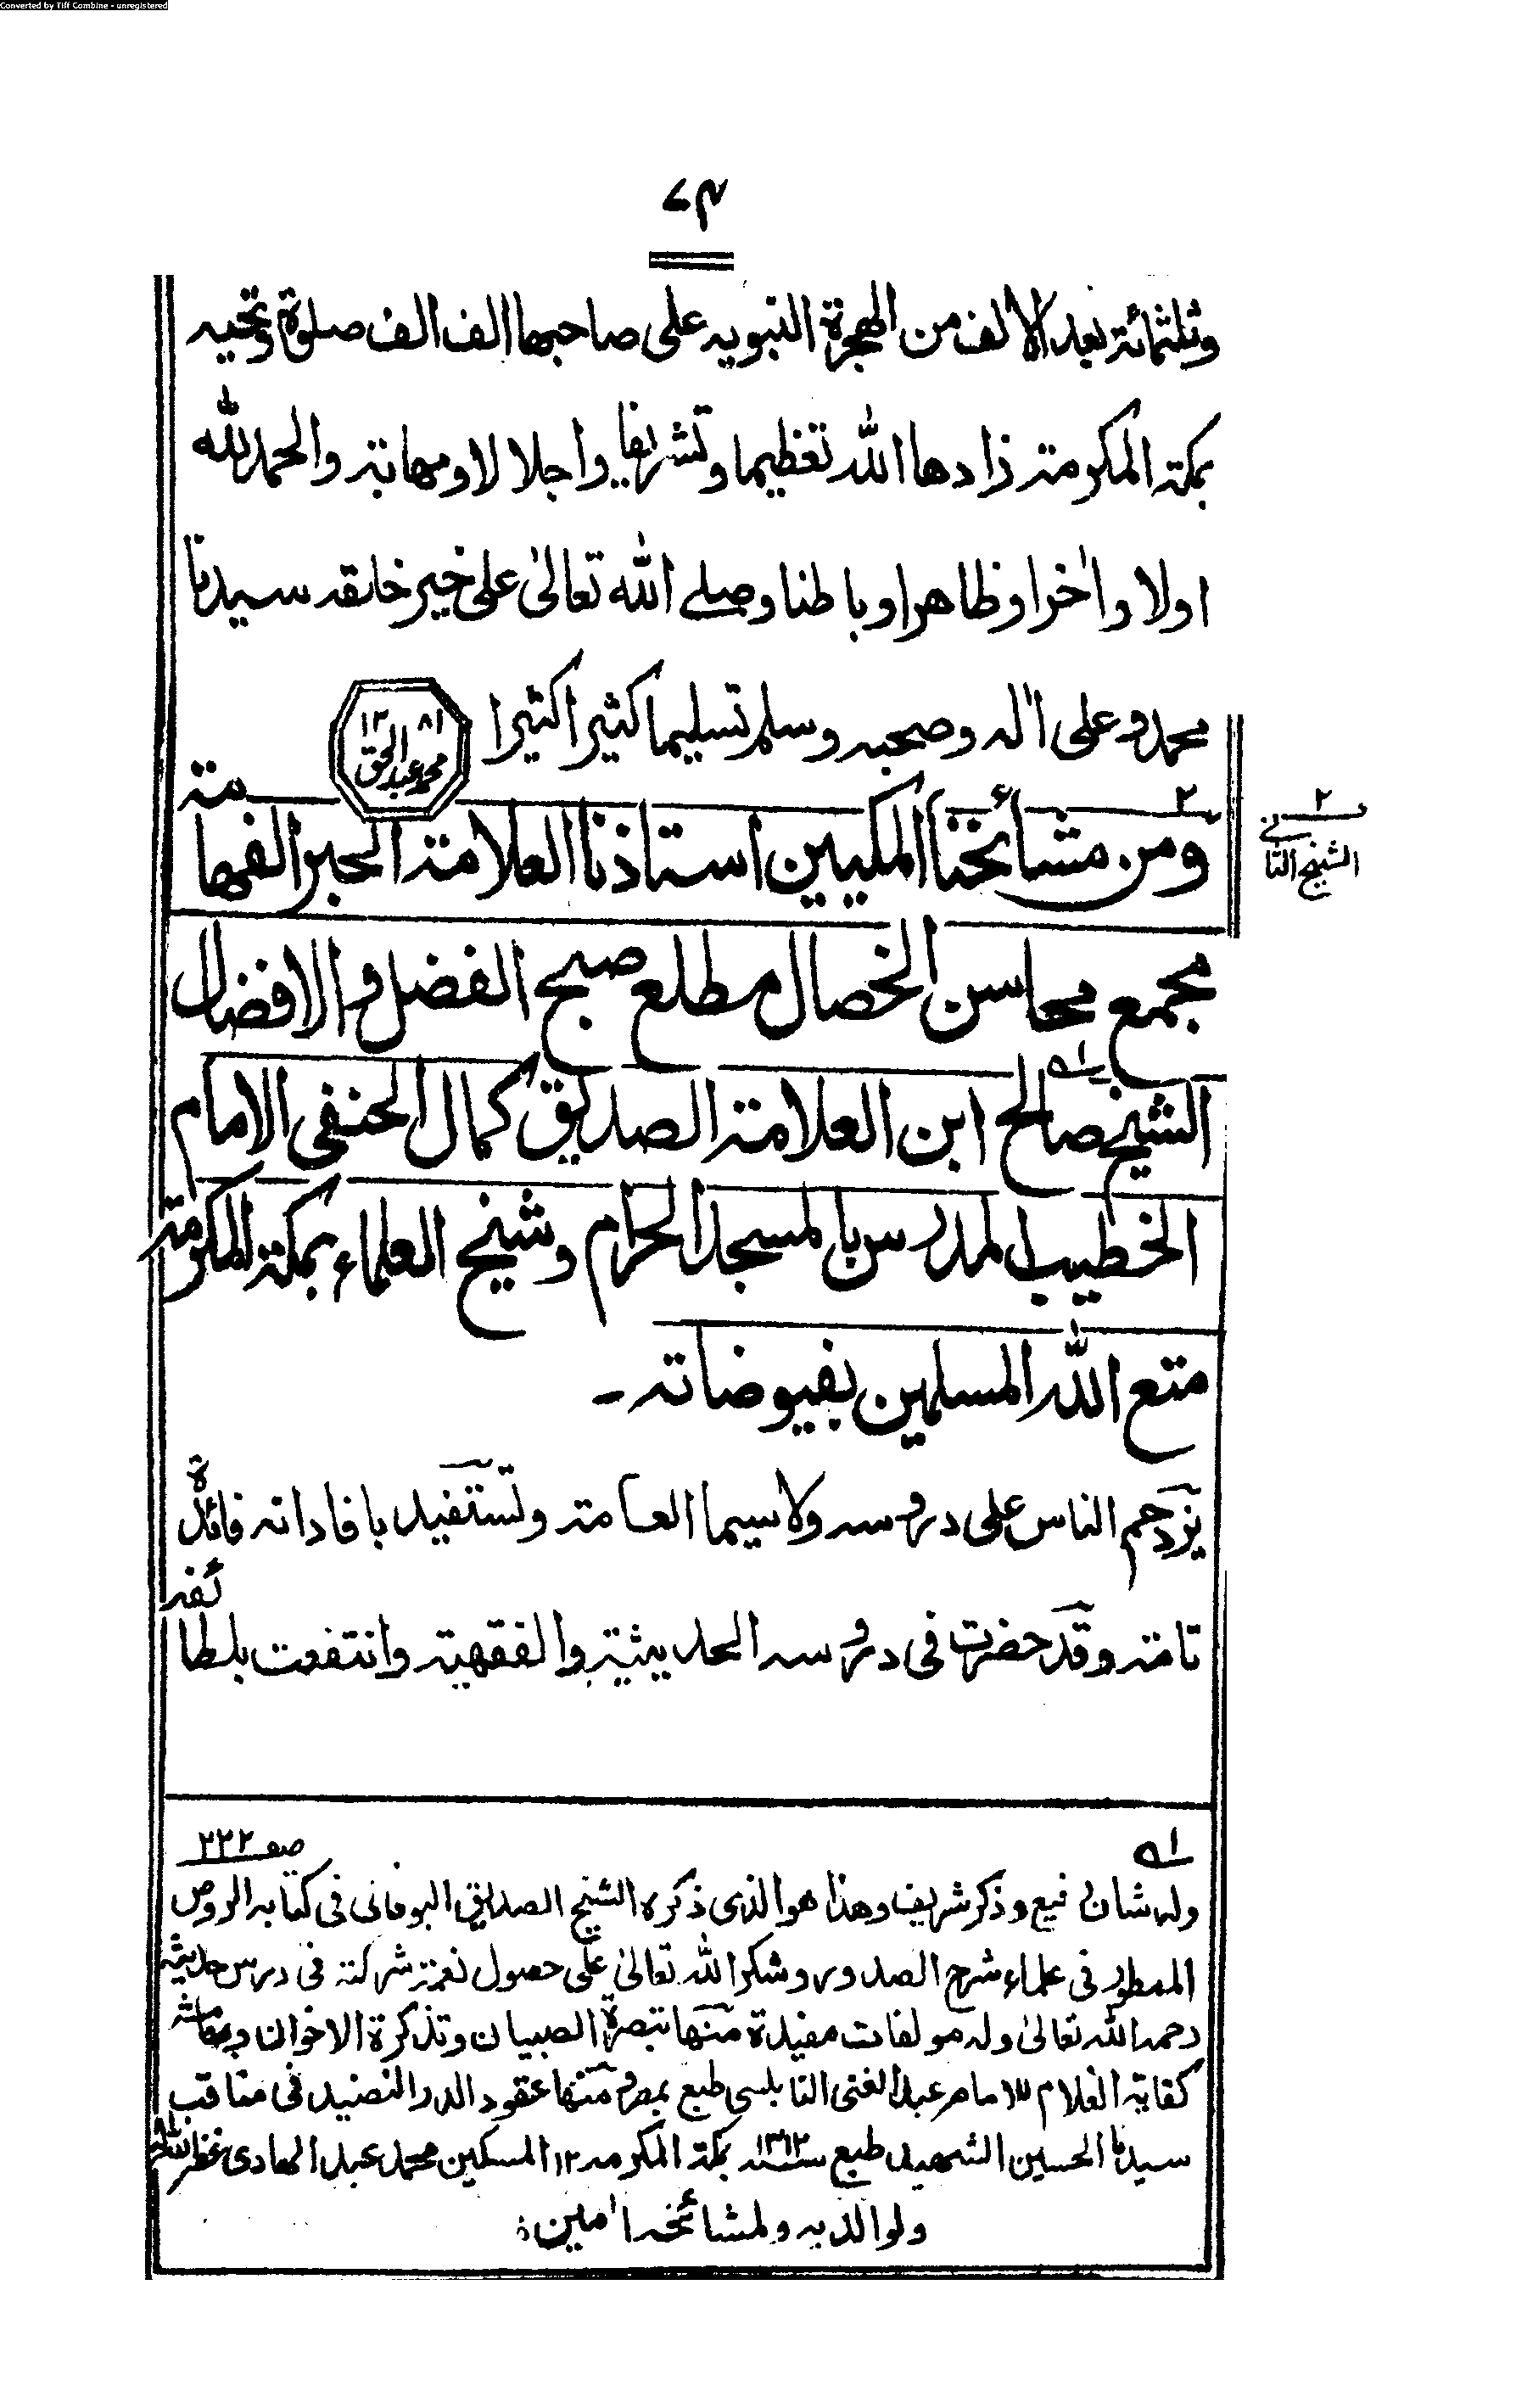 Converted by Tiff Combine - unregistered
٧٤
وثلثمائة بعد الالف من الهجرة النبويه على صاحبها الف الف صلوة وتحيه
بمكة المكرمته زادها الله تعظيما وتشريفا واجلالا ومهابته والحمد لله
اولا واٰخرا وظاهرا وباطنا وصلے الله تعالىٰ على خير خلقه سيدنا
محمد وعلى اٰله وصحبه وسلم تسليما كثيرا كثيرا
١٢٨١
محمد عبد الحق
٢
ومن مشائخنا المكيين استاذنا العلامته الحبر الفهامته
٢
الشيخ الثانی
مجمع محاسن الخصال مطلع صبح الفضل والافضال
الشيخ صالح ١ه ابن العلامته الصديق كمال الحنفى الامام
الخطيب المدرس بالمسجد الحرام وشيخ العلماء بمكته المكرمته
متع الله المسلمين بفيوضاته ـ
يزدحم الناس على دروسه ولا سيما العامته وتستفيد بافاداته فائدة
تامته وقد حضرت فى دروسه الحديثية والفقهيته وانتفعت بلطائفه
١ه
صفـ ٢٣٢
وله شان رفيع وذكر شريف وهذا هو الذى ذكره الشيخ الصديق البوفانى فى كتابه الروض
الممطور فى علماء شرح الصدور وشكر الله تعالىٰ على حصول نعمة شركته فى درس حديثه
رحمه الله تعالىٰ وله مولفات مفيدة منها تبصرة الصبيان وتذكرة الاخوان
كفاية الغلام للامام عبد الغنى النابلسى طبع بمصر ومنها عقود الدر النضيد فى مناقب
سيدنا الحسين الشهيد طبع سنه ١٣١٢ بمكة المكرمه ١٢ المسكين محمد عبد الهادى غفر الله له
ولوالديه ولمشائخه اٰمين